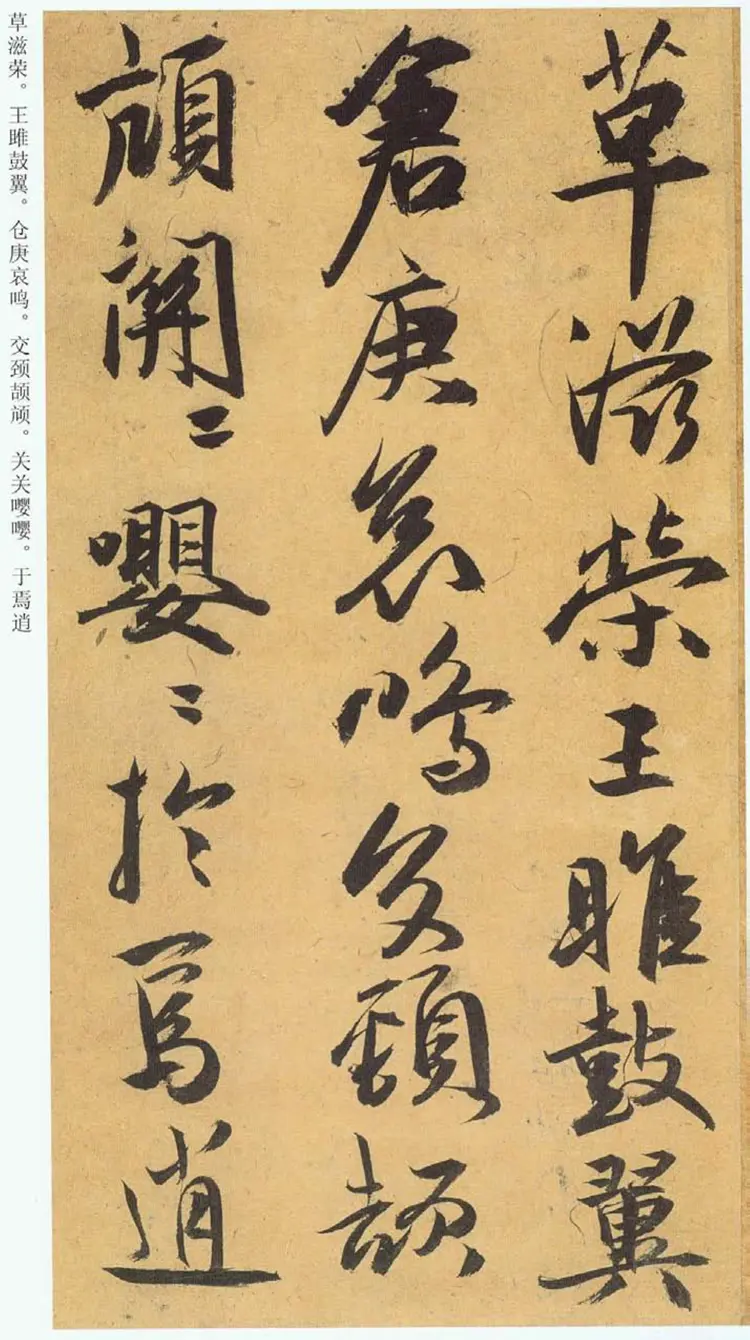 草滋荣王雎鼓翼
倉庚哀鳴交頸頡
頏關〻嚶〻於焉逍
草滋荣。王雎鼓翼。仓庚哀鸣。交颈颉颃。关关嘤嘤。于焉逍